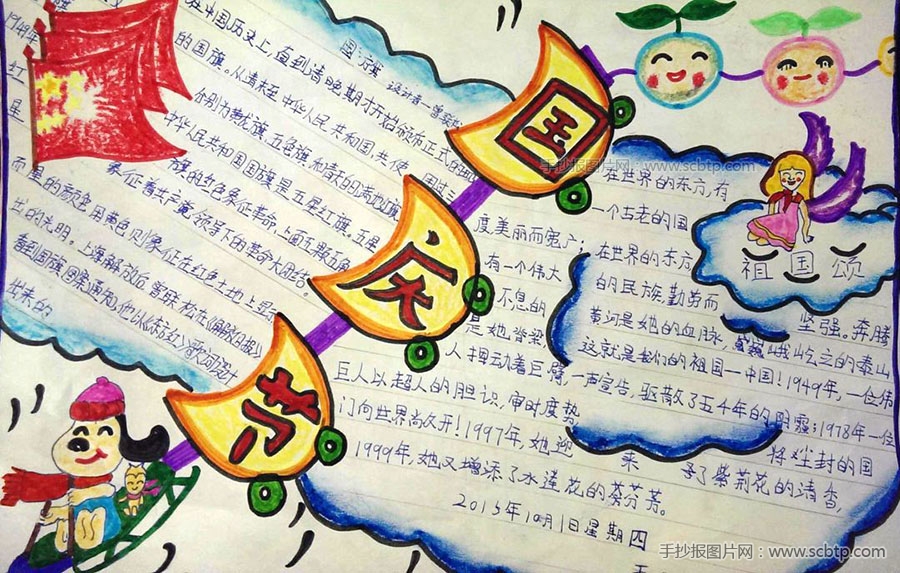 国庆节
国旗 设计者—曾联松
在中国历史上,直到清晚期才开始颁布正式的
的国旗。从清末至中华人民共和国,共使
分别为黄龙旗 五色旗和
中华人民共和国国旗是五星红旗。五星
旗的红色象征革命,上面五颗五角
象征着共产党领导下的革命大团结。
星的颜色用黄色则象征在红色土地上显
出的光明。上海解放后曾联松在《解放日报》
看到国旗图案通知,他从《东方红》歌词设计
出来的
祖国颂
在世界的东方,有
一个古老的国
度美丽而宽广;在世界的东方
有一个伟大的民族勤劳而
坚强。奔腾
不息的黄河是她的血脉,巍巍峨屹立的泰山
是她脊梁这就是我们的祖国—中国!1949年,一位伟
人挥动着巨臂,一声宣告,驱散了五千年的阴霾;1978年一位
巨人以超人的胆识,审时度势 将尘封的国
门向世界尚久开!1997年,她迎来了紫荆花的清香,
1999年,她又增添了水莲花的芬芳。
2015年10月1日星期四
手抄报图片网:www.scbtp.com
手抄报图片网:www.scbtp.com